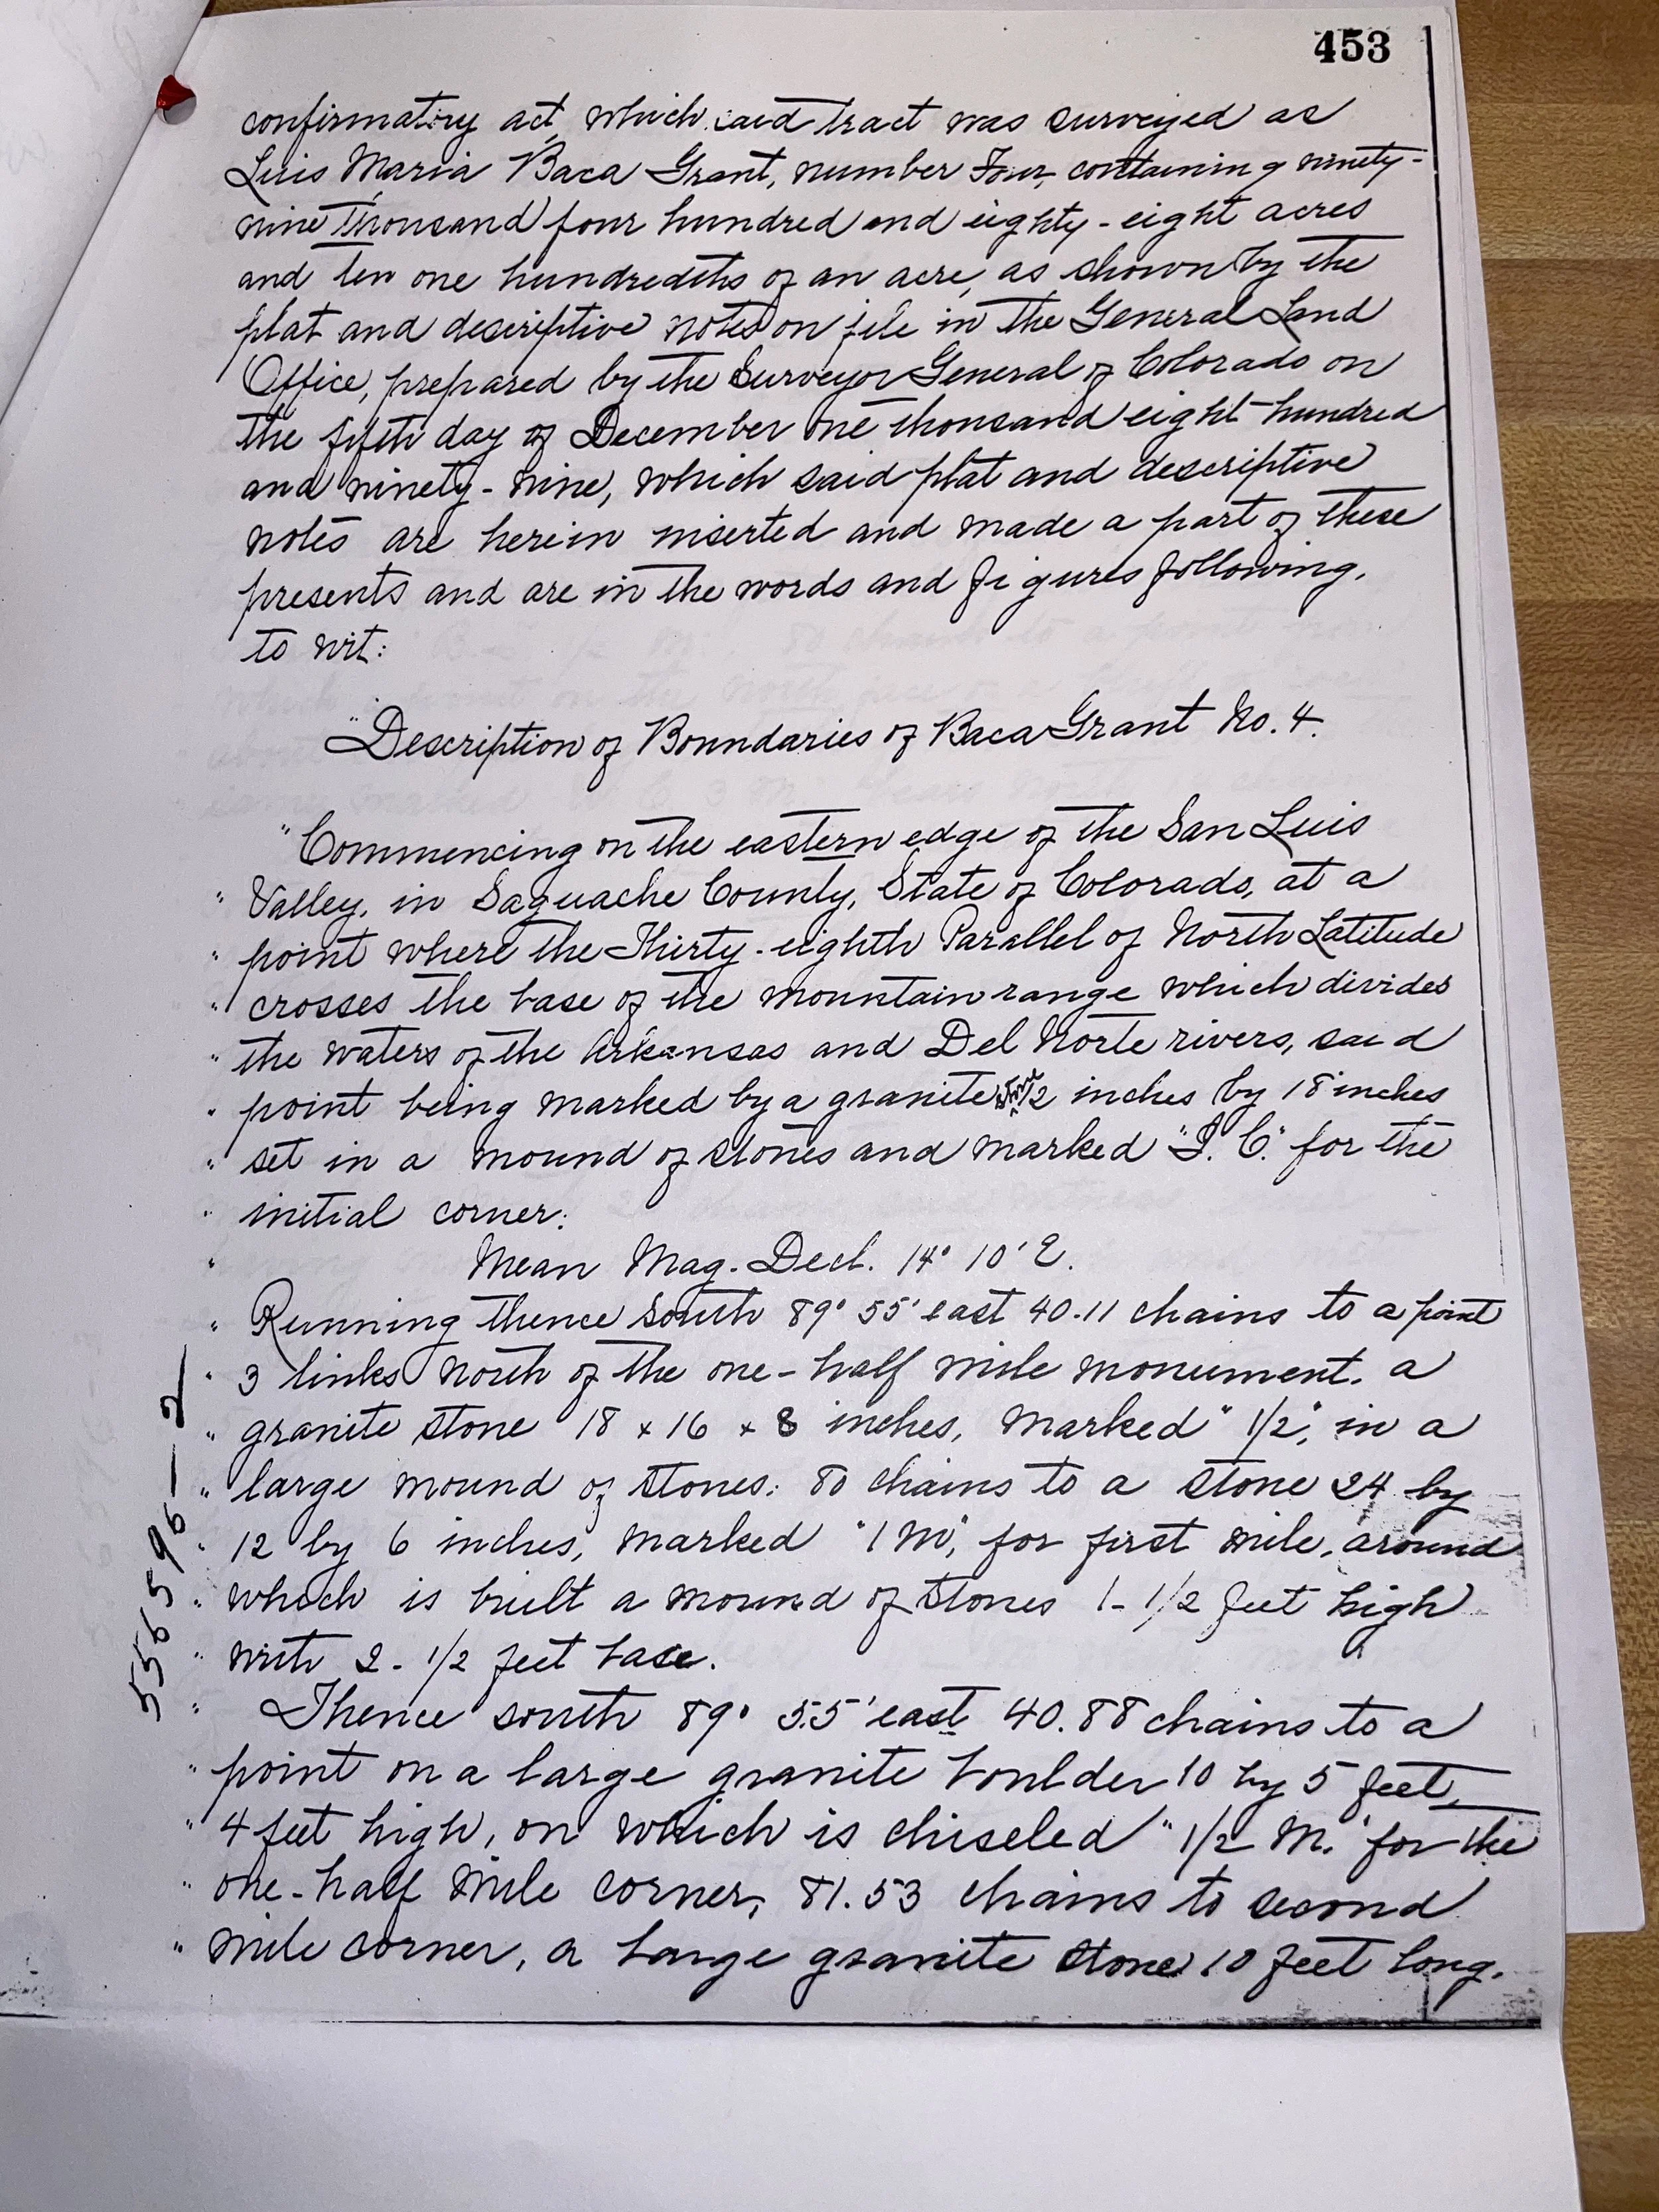 453
confirmatory act, which said tract was surveyed as
Luis Maria Baca Grant, number Four, containing ninety-
nine thousand four hundred and eighty-eight acres
and ten one hundredths of an acre, as shown by the
plat and descriptive notes on file in the General Land
Office, prepared by the Surveyor General of Colorado on
the fifth day of December one thousand eight hundred
and ninety-nine, which said plat and descriptive
notes are herein inserted and made a part of these
presents and are in the words and figures following,
to wit:
"Description of Boundaries of Baca Grant No. 4.
"Commencing on the eastern edge of the San Luis
" Valley, in Saguache County, State of Colorado, at a
" point where the Thirty-eighth Parallel of North Latitude
" crosses the base of the mountain range which divides
" the waters of the Arkansas and Del Norte rivers, said
" point being marked by a granite stone 12 inches by 18 inches
" set in a mound of stones and marked "I. C." for the
" initial corner:
" Mean Mag. Decl. 14° 10' E.
" Running thence south 89° 55' east 40.11 chains to a point
" 3 links north of the one-half mile monument, a
" granite stone 18 x 16 x 8 inches, marked "1/2", in a
" large mound of stones: 80 chains to a stone 24 by
" 12 by 6 inches, marked "1 M", for first mile, around
" which is built a mound of stones 1-1/2 feet high
" with 2-1/2 feet base.
" Thence south 89° 55' east 40.88 chains to a
" point on a large granite boulder 10 by 5 feet,
" 4 feet high, on which is chiseled "1/2 M." for the
" one-half mile corner, 81.53 chains to second
" mile corner, a large granite stone 10 feet long,
556596-2